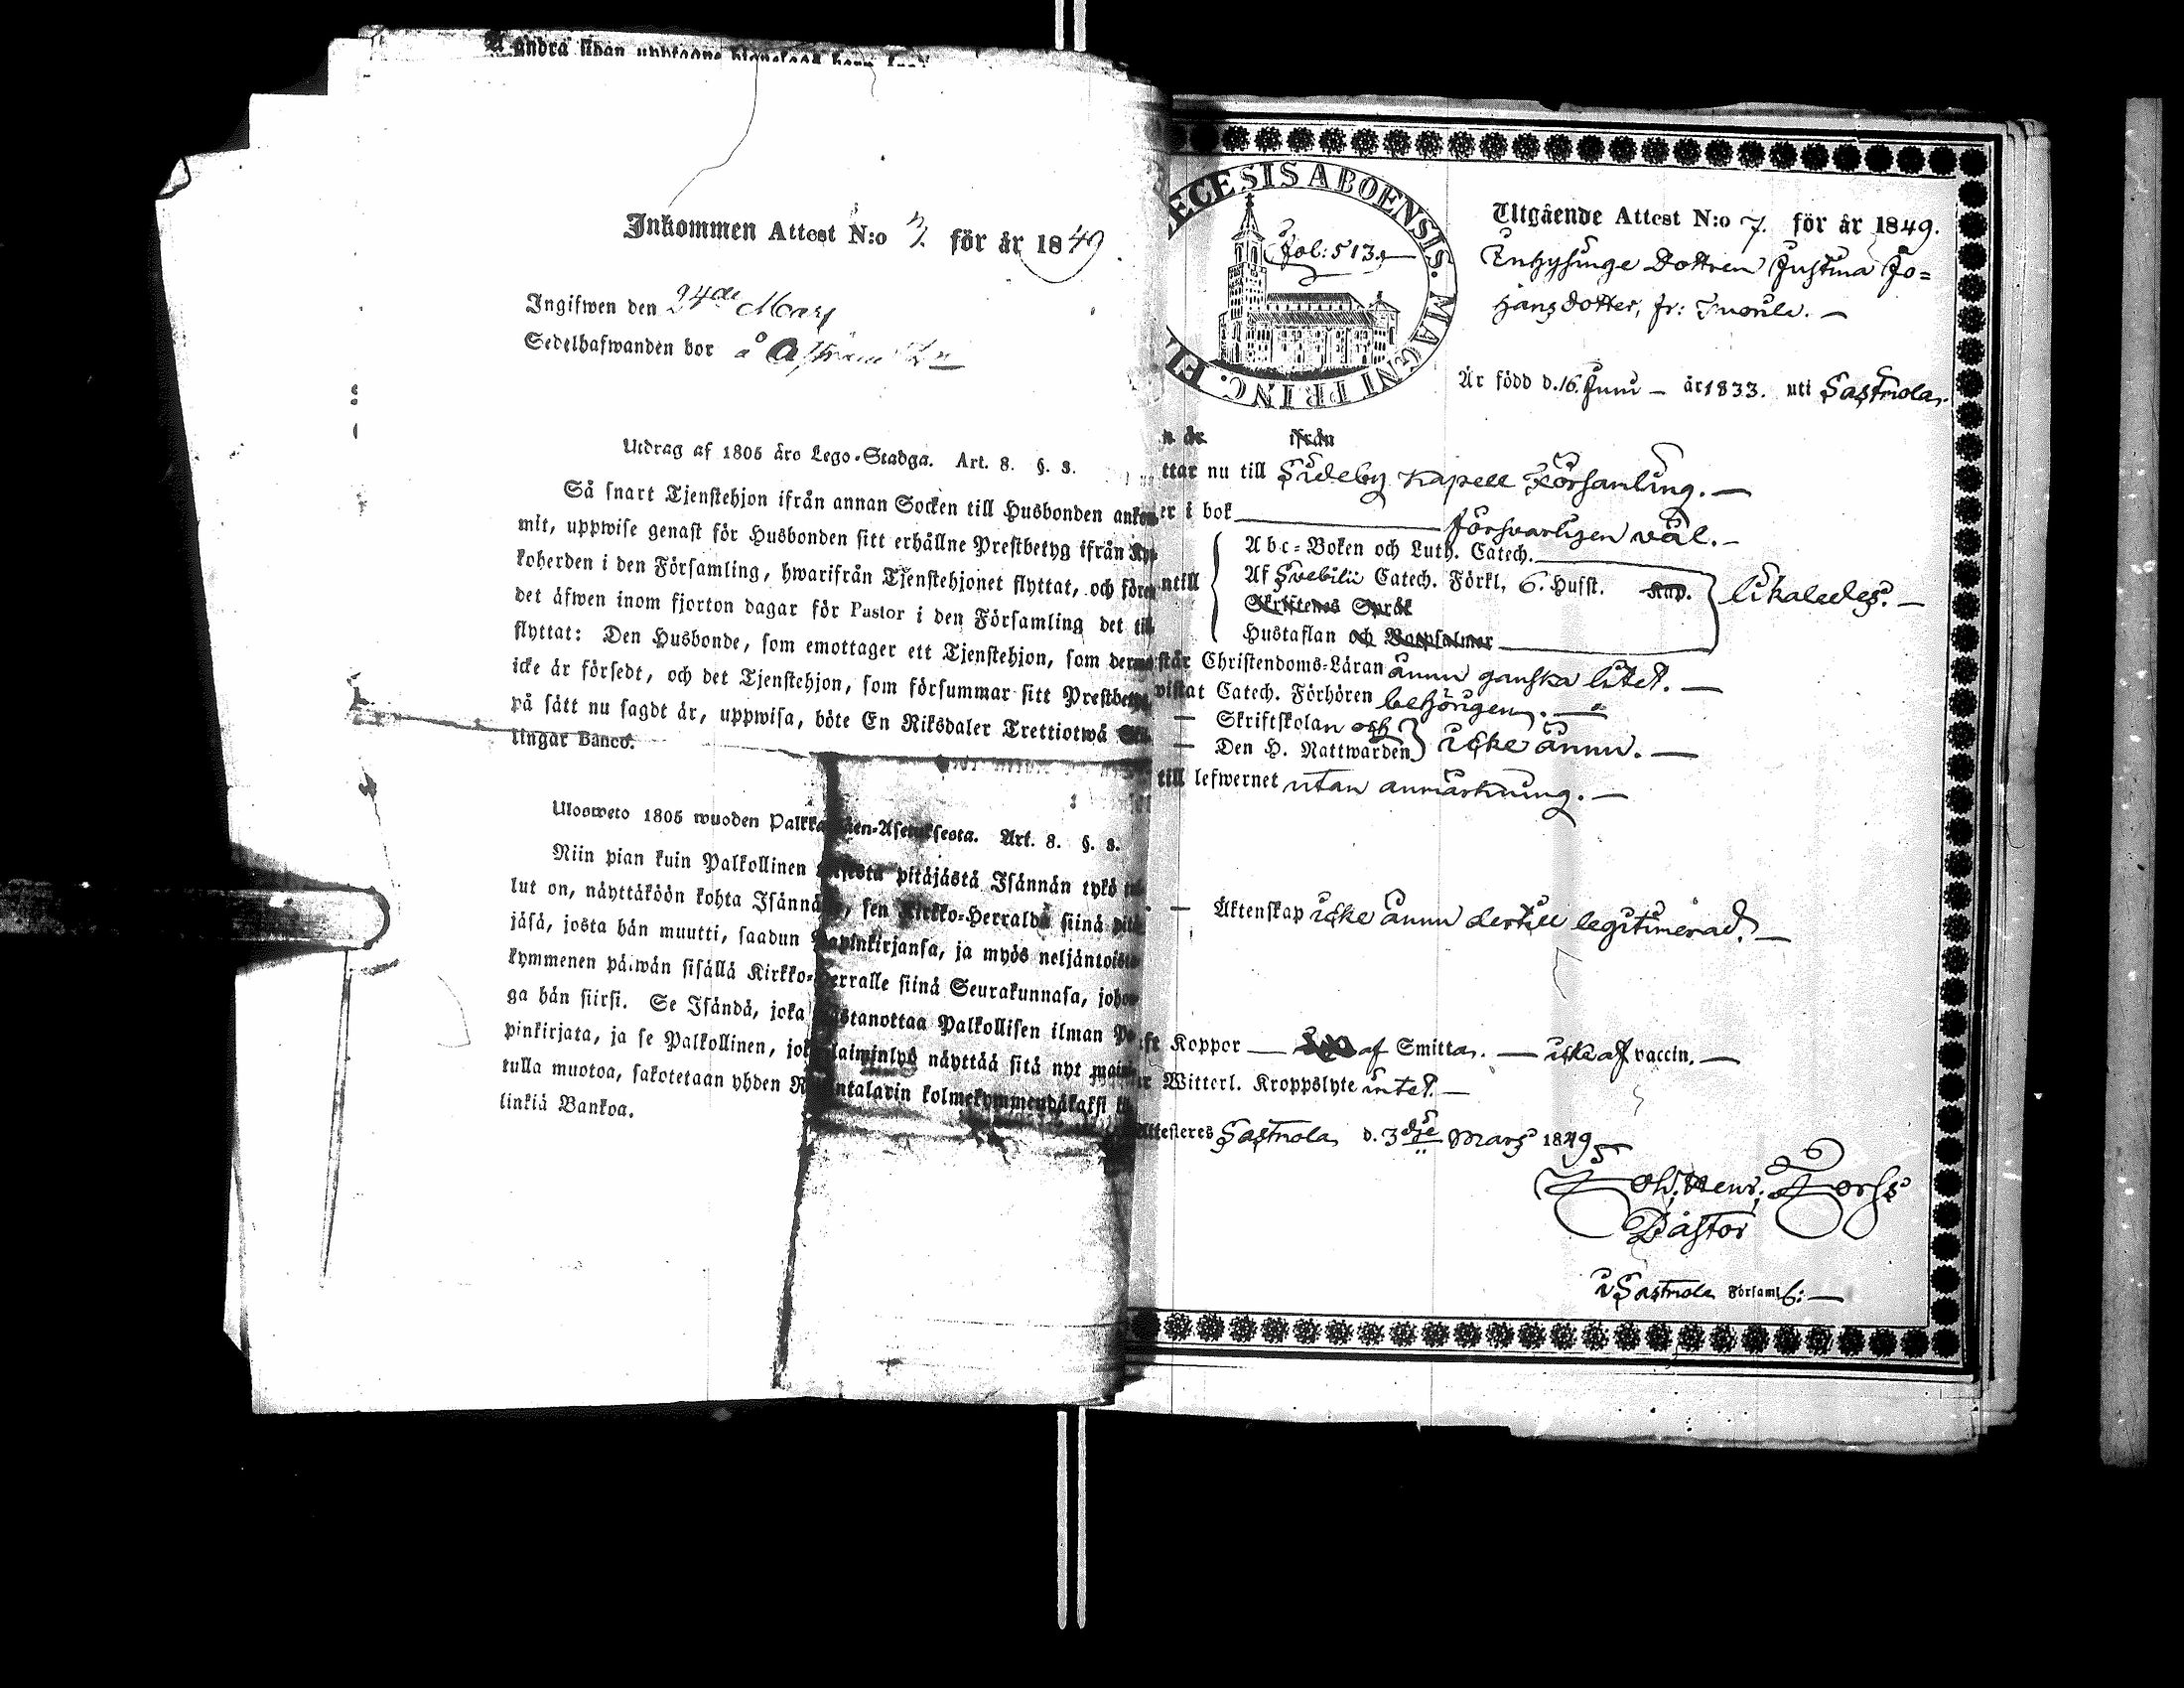 Å andra sidan
Inkommen Attest N:o 7. för år 1849
Ingifwen den 24de Mars
Sedelhafwanden bor å
Utdrag af 1805 års Lego-Stadga. Art. 8. §. 3.
Så snart Tjenstehjon ifrån annan Socken till Husbonden
mit, uppwise genast för Husbonden sitt erhållne Prestbetyg ifrån
koherden i den Församling, hwarifrån Tjenstehjonet flyttat, och
det äfwen inom fjorton dagar för Pastor i den Församling det
flyttat: Den Husbonde, som emottager ett Tjenstehjon, som
icke är försedt, och det Tjenstehjon, som försummar sitt
på sätt nu sagdt är, uppwisa, böte En Riksdaler Trettiotwå
lingar Banco.
Ulosweto 1805 wuoden Art. 8. §. 3.
Niin pian kuin Palkollinen pitäjästä Isännän tykö
lut on, näyttäköön kohta sen Kirkko-Herralda siinä
jäsä, josta hän muutti, saadun Papinkirjansa, ja myös
kymmenen päiwän sisällä Kirkko-Herralle siinä Seurakunnasa,
ga hän siirsi. Se Isändä, joka wastanottaa Palkollisen ilman
pinkirjata, ja se Palkollinen, laiminlyö näyttää sitä nyt
tulla muotoa, sakotetaan yhden kolmekymmendäkaksi
linkiä Bankoa.
ECESIS ABOENSIS. MAGNI PRINC.
Fol: 513.
Utgående Attest N:o 7. för år 1849.
Inhysinge Dottren Justina Jo=
hansdotter, fr:
Är född d. 16 Juni — år 1833. uti Sastmola.
ifrån
ttar nu till Sideby Kapell Församling. —
er i bok försvarligen väl. —
Abc-Boken och Luth. Catech.
ntill Af Svebilii Catech. Förkl. 6. Hufst. Kap. likaledes. —
Skriftenes Språk
Hustaflan och
står Christendoms-Läran ännu ganska litet. —
vistat Catech. Förhören behörigen. —
— Skriftskolan och
— Den H. Nattwarden icke ännu. —
till lefwernet utan anmärkning. —
— Äktenskap icke ännu dertill legitimerad. —
ft Koppor — af Smitta. — icke af vaccin. —
Witterl. Kroppslyte intet. —
Attesteres Sastmola d. 3dje Mars 1849
Joh. Henr. Forss
Pastor
i Sastmola Församl